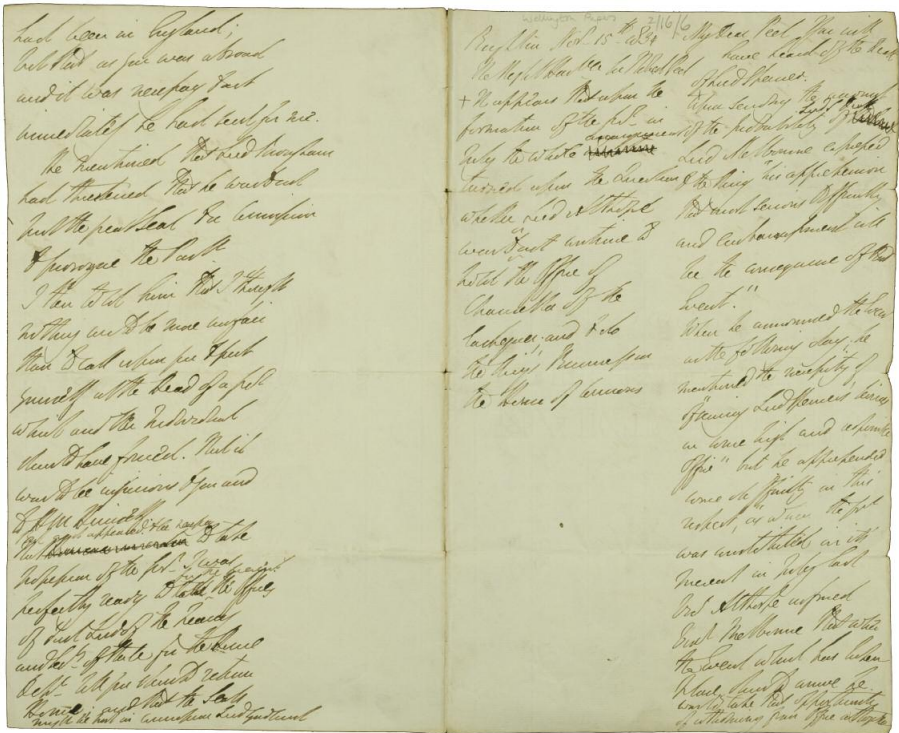 had been in England;
but that as you was abroad
and it was necessary to act
immediately he had sent for me.
He mentioned that Lord Brougham
had threatened that he would not
put the great Seal to a Commission
to prorogue the Parlt.
I then told him that I thought
nothing could be more unfair
than to call upon you to put
yourself at the head of a govt
which another Individual
should have formed. That it
would be injurious to you and
to H M Himself
But
that as it appeared to be necessary
to take
possession of the govt I was
perfectly ready to take the Offices
of First Lord of the Treasury
and Secy of State for the Home
Dept till you should return
Home; and that the Seals
might be held in Commission Lord Lyndhurst
Wellington Papers
2/16/6
Brighton Novr 15th 1834
The Right Hon Sir Robert Peel
+ It appears that upon the
formation of the govt in
July the whole arrangement
turned upon the question
whether Lord Althorp
would or not continue to
hold the Office of
Chancellor of the
Exchequer; and to do
the King's Business in
the House of Commons
My Dear Peel, You will
have heard of the death
of Lord Spencer.
Upon sending the account
of the probability of Lord's death
Lord Melbourne expressed
to the King "his apprehension
that most serious difficulty
and embarrassment will
be the consequence of that
Event."
When he announced the Event
on the following day; he
mentioned the necessity of
"having Lord Spencer's services
in some high and responsible
Office" but he apprehended
some difficulty in this
respect, "as when the govt
was constituted in its
present in July last
Lord Althorp informed
Visct Melbourne that when
the Event which has taken
place should arrive he
would take that opportunity
of withdrawing from office altogether